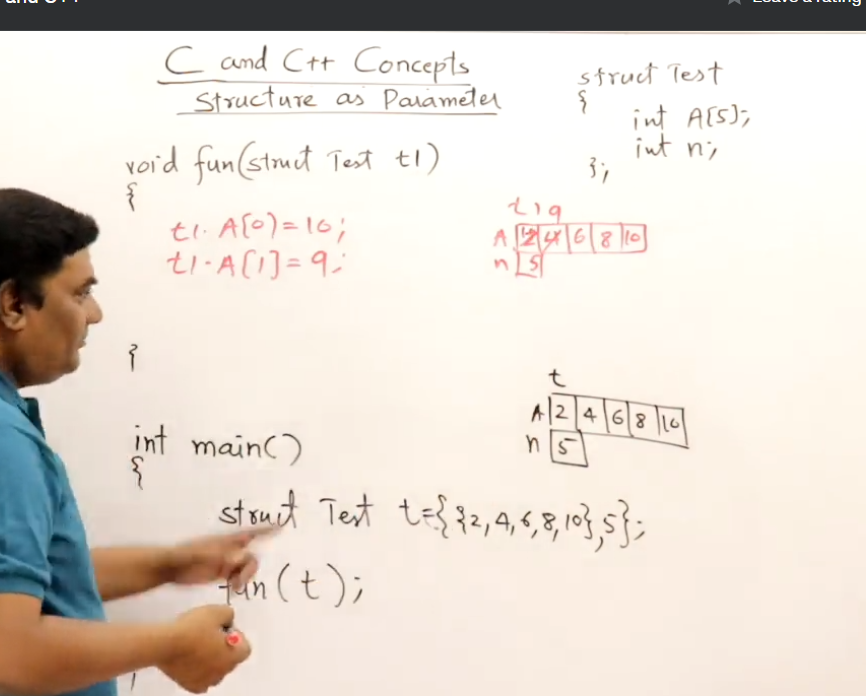 C and C++ Concepts
Structure as Parameter
struct Test
{
int A[5];
int n;
};
void fun(struct Test t1)
{
t1.A[0]=10;
t1.A[1]=9;
}
t1 9
A 2 4 6 8 10
n 5
t
A 2 4 6 8 10
n 5
int main()
{
struct Test t={{2,4,6,8,10},5};
fun(t);
}